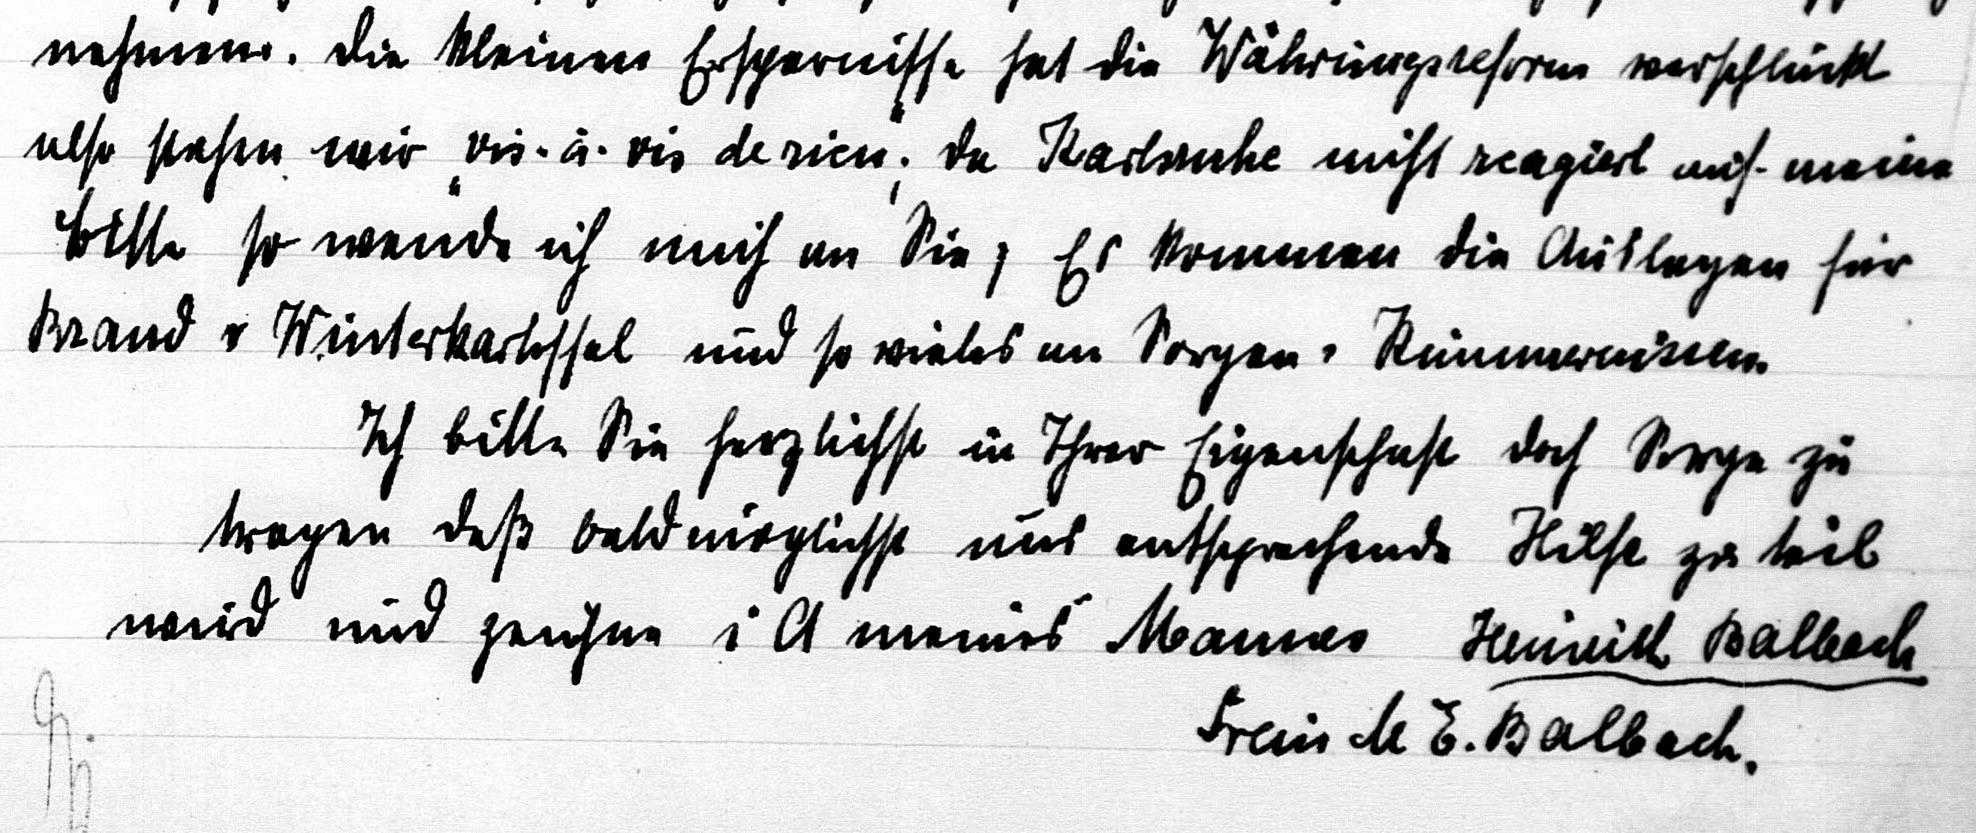 nehmen. Die kleinen Ersparnisse hat die Währungsreform verschluckt
also stehen wir „vis-à-vis de rien“; da Karlsruhe nicht reagiert auf meine
Bitte so wende ich mich an Sie; Es kommen die Auslagen für
Brand u Winterkartoffel und so vieles an Sorgen u Kümmernissen.
Ich bitte Sie herzlichst in Ihrer Eigenschaft doch Sorge zu
tragen daß baldmöglichst uns entsprechende Hilfe zu teil
wird und zeichne i A meines Mannes Heinrich Balbach
Frau M E. Balbach.